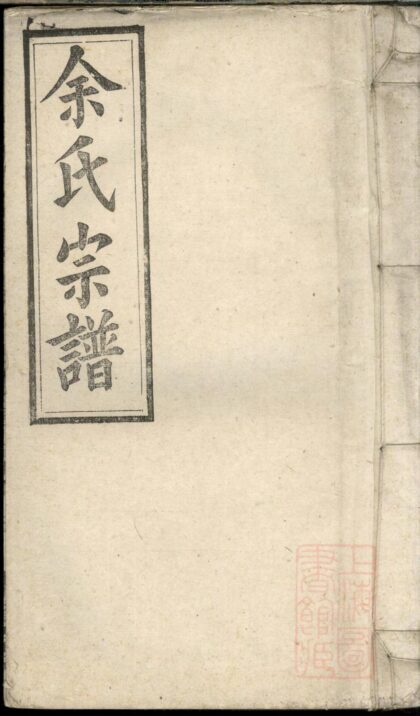 余氏宗譜
上海圖
書館